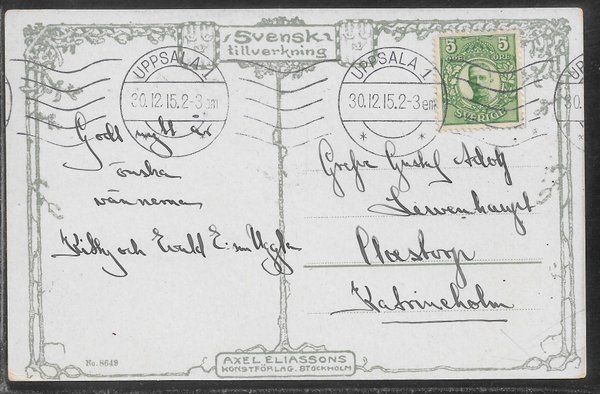 Svensk
tillverkning
UPPSALA 1
30.12.15.2-3 em
UPPSALA 1
30.12.15.2-3 em
30.
5 5
ÖRE ÖRE
SVERIGE
Godt nytt år
önska
vännerna
Kibby och Evald E:son Uggla
Grefve Gustaf Adolf
Lewenhaupt
Plevstorp
Katrineholm
No. 8649
AXEL ELIASSONS
KONSTFÖRLAG. STOCKHOLM